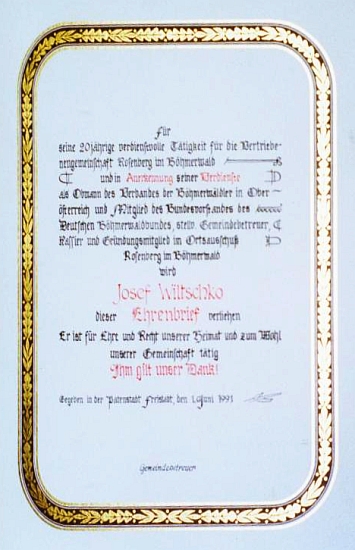 Für
seine 20jährige verdienstvolle Tätigkeit für die Vertriebe-
nengemeinschaft Rosenberg im Böhmerwald
und in Anerkennung seiner Verdienste
als Obmann des Verbandes der Böhmerwäldler in Ober-
österreich und Mitglied des Bundesvorstandes des
Deutschen Böhmerwaldbundes, stellv. Gemeindebetreuer,
Kassier und Gründungsmitglied im Ortsausschuß
Rosenberg im Böhmerwald
wird
Josef Wiltschko
dieser Ehrenbrief verliehen
Er ist für Ehre und Recht unserer Heimat und zum Wohl
unserer Gemeinschaft tätig
Ihm gilt unser Dank!
Gegeben in der Patenstadt Freistadt, den 1. Juni 1991
Gemeindebetreuer